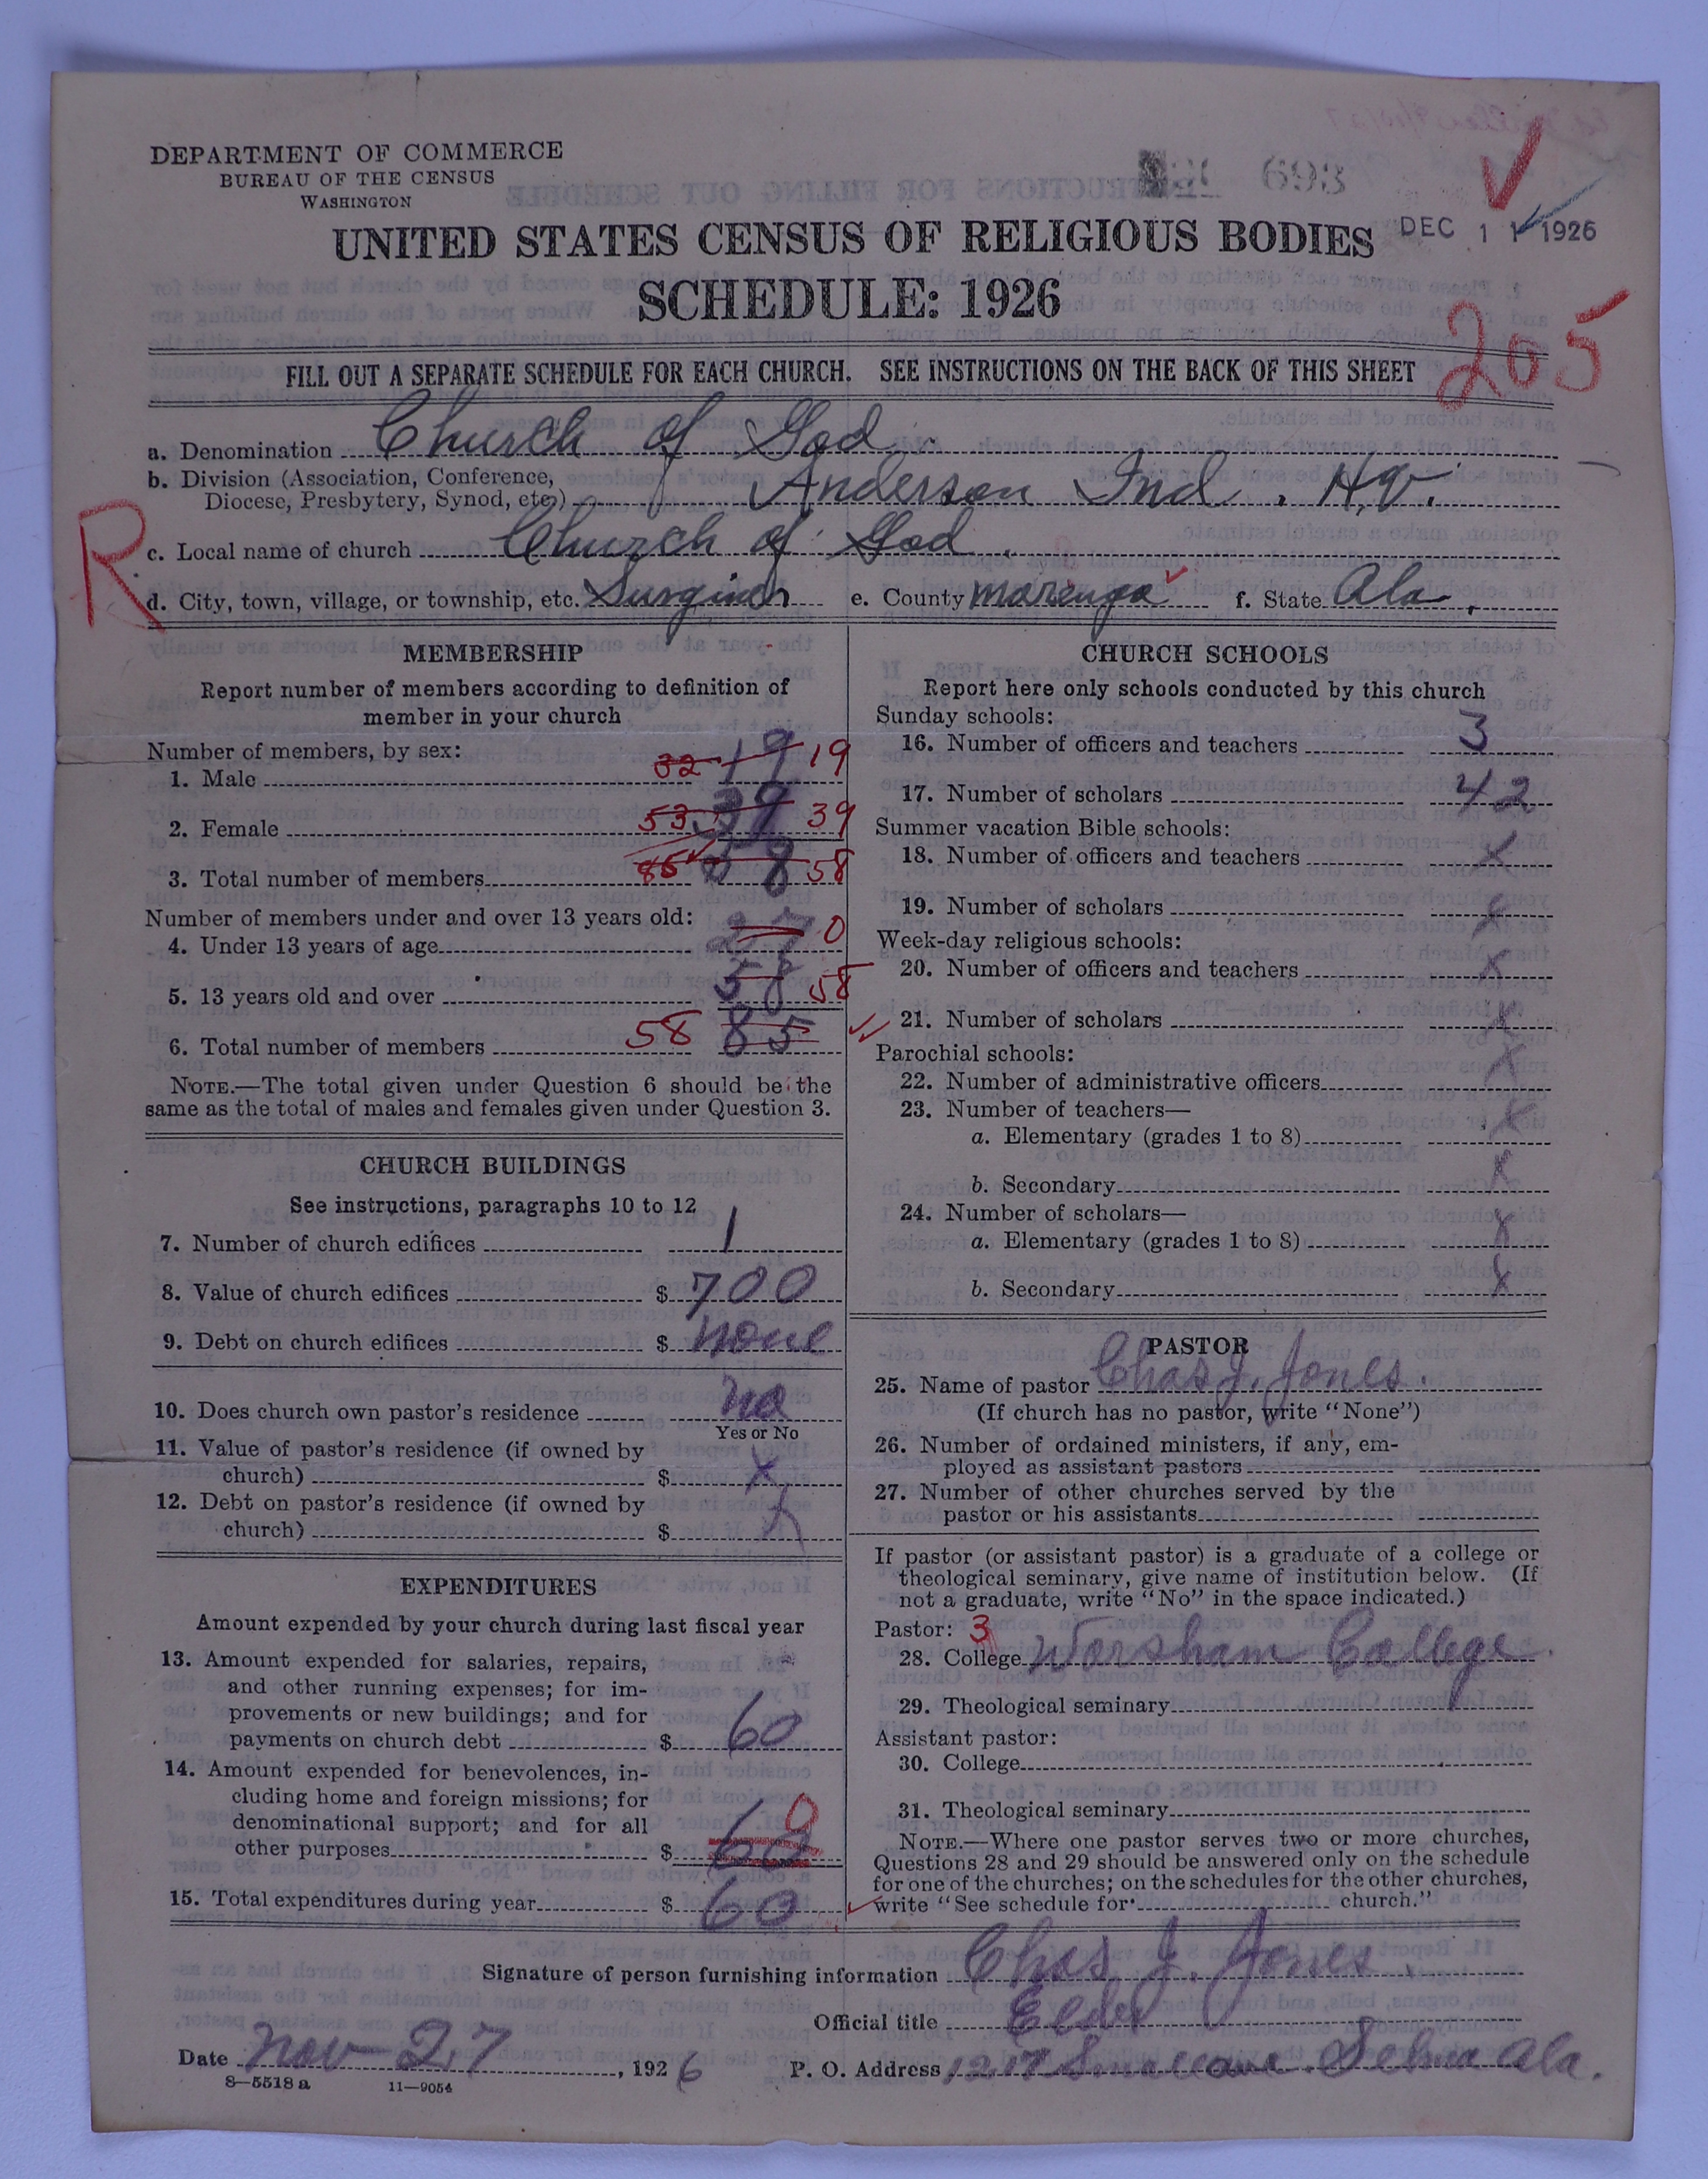 DEPARTMENT OF COMMERCE
BUREAU OF THE CENSUS
WASHINGTON
693
UNITED STATES CENSUS OF RELIGIOUS BODIES
DEC 11 1926
SCHEDULE: 1926
205
FILL OUT A SEPARATE SCHEDULE FOR EACH CHURCH. SEE INSTRUCTIONS ON THE BACK OF THIS SHEET
a. Denomination Church of God.
b. Division (Association, Conference,
Diocese, Presbytery, Synod, etc.) Anderson Ind. Hq.
R
c. Local name of church Church of God.
d. City, town, village, or township, etc. Surginer e. County Marengo f. State Ala.
MEMBERSHIP
Report number of members according to definition of
member in your church
Number of members, by sex:
1. Male 32 19 19
2. Female 53 39 39
3. Total number of members 85 58 58
Number of members under and over 13 years old:
4. Under 13 years of age 27 0
5. 13 years old and over 58 58
6. Total number of members 58 85
NOTE.—The total given under Question 6 should be the
same as the total of males and females given under Question 3.
CHURCH BUILDINGS
See instructions, paragraphs 10 to 12
7. Number of church edifices 1
8. Value of church edifices $ 700
9. Debt on church edifices $ none
10. Does church own pastor's residence no
Yes or No
11. Value of pastor's residence (if owned by
church) $ x
12. Debt on pastor's residence (if owned by
church) $ x
EXPENDITURES
Amount expended by your church during last fiscal year
13. Amount expended for salaries, repairs,
and other running expenses; for im-
provements or new buildings; and for
payments on church debt $ 60
14. Amount expended for benevolences, in-
cluding home and foreign missions; for
denominational support; and for all
other purposes $ 60 0
15. Total expenditures during year $ 60
CHURCH SCHOOLS
Report here only schools conducted by this church
Sunday schools:
16. Number of officers and teachers 3
17. Number of scholars 42
Summer vacation Bible schools:
18. Number of officers and teachers x
19. Number of scholars x
Week-day religious schools:
20. Number of officers and teachers x
21. Number of scholars x
Parochial schools:
22. Number of administrative officers x
23. Number of teachers—
a. Elementary (grades 1 to 8) x
b. Secondary x
24. Number of scholars—
a. Elementary (grades 1 to 8) x
b. Secondary x
PASTOR
25. Name of pastor Chas J. Jones.
(If church has no pastor, write "None")
26. Number of ordained ministers, if any, em-
ployed as assistant pastors
27. Number of other churches served by the
pastor or his assistants
If pastor (or assistant pastor) is a graduate of a college or
theological seminary, give name of institution below. (If
not a graduate, write "No" in the space indicated.)
Pastor: 3
28. College Worsham College.
29. Theological seminary
Assistant pastor:
30. College
31. Theological seminary
NOTE.—Where one pastor serves two or more churches,
Questions 28 and 29 should be answered only on the schedule
for one of the churches; on the schedules for the other churches,
write "See schedule for church."
Signature of person furnishing information Chas J. Jones.
Official title Elder
Date Nov-27, 1926 P. O. Address Selma Ala.
8—5518 a 11—9054